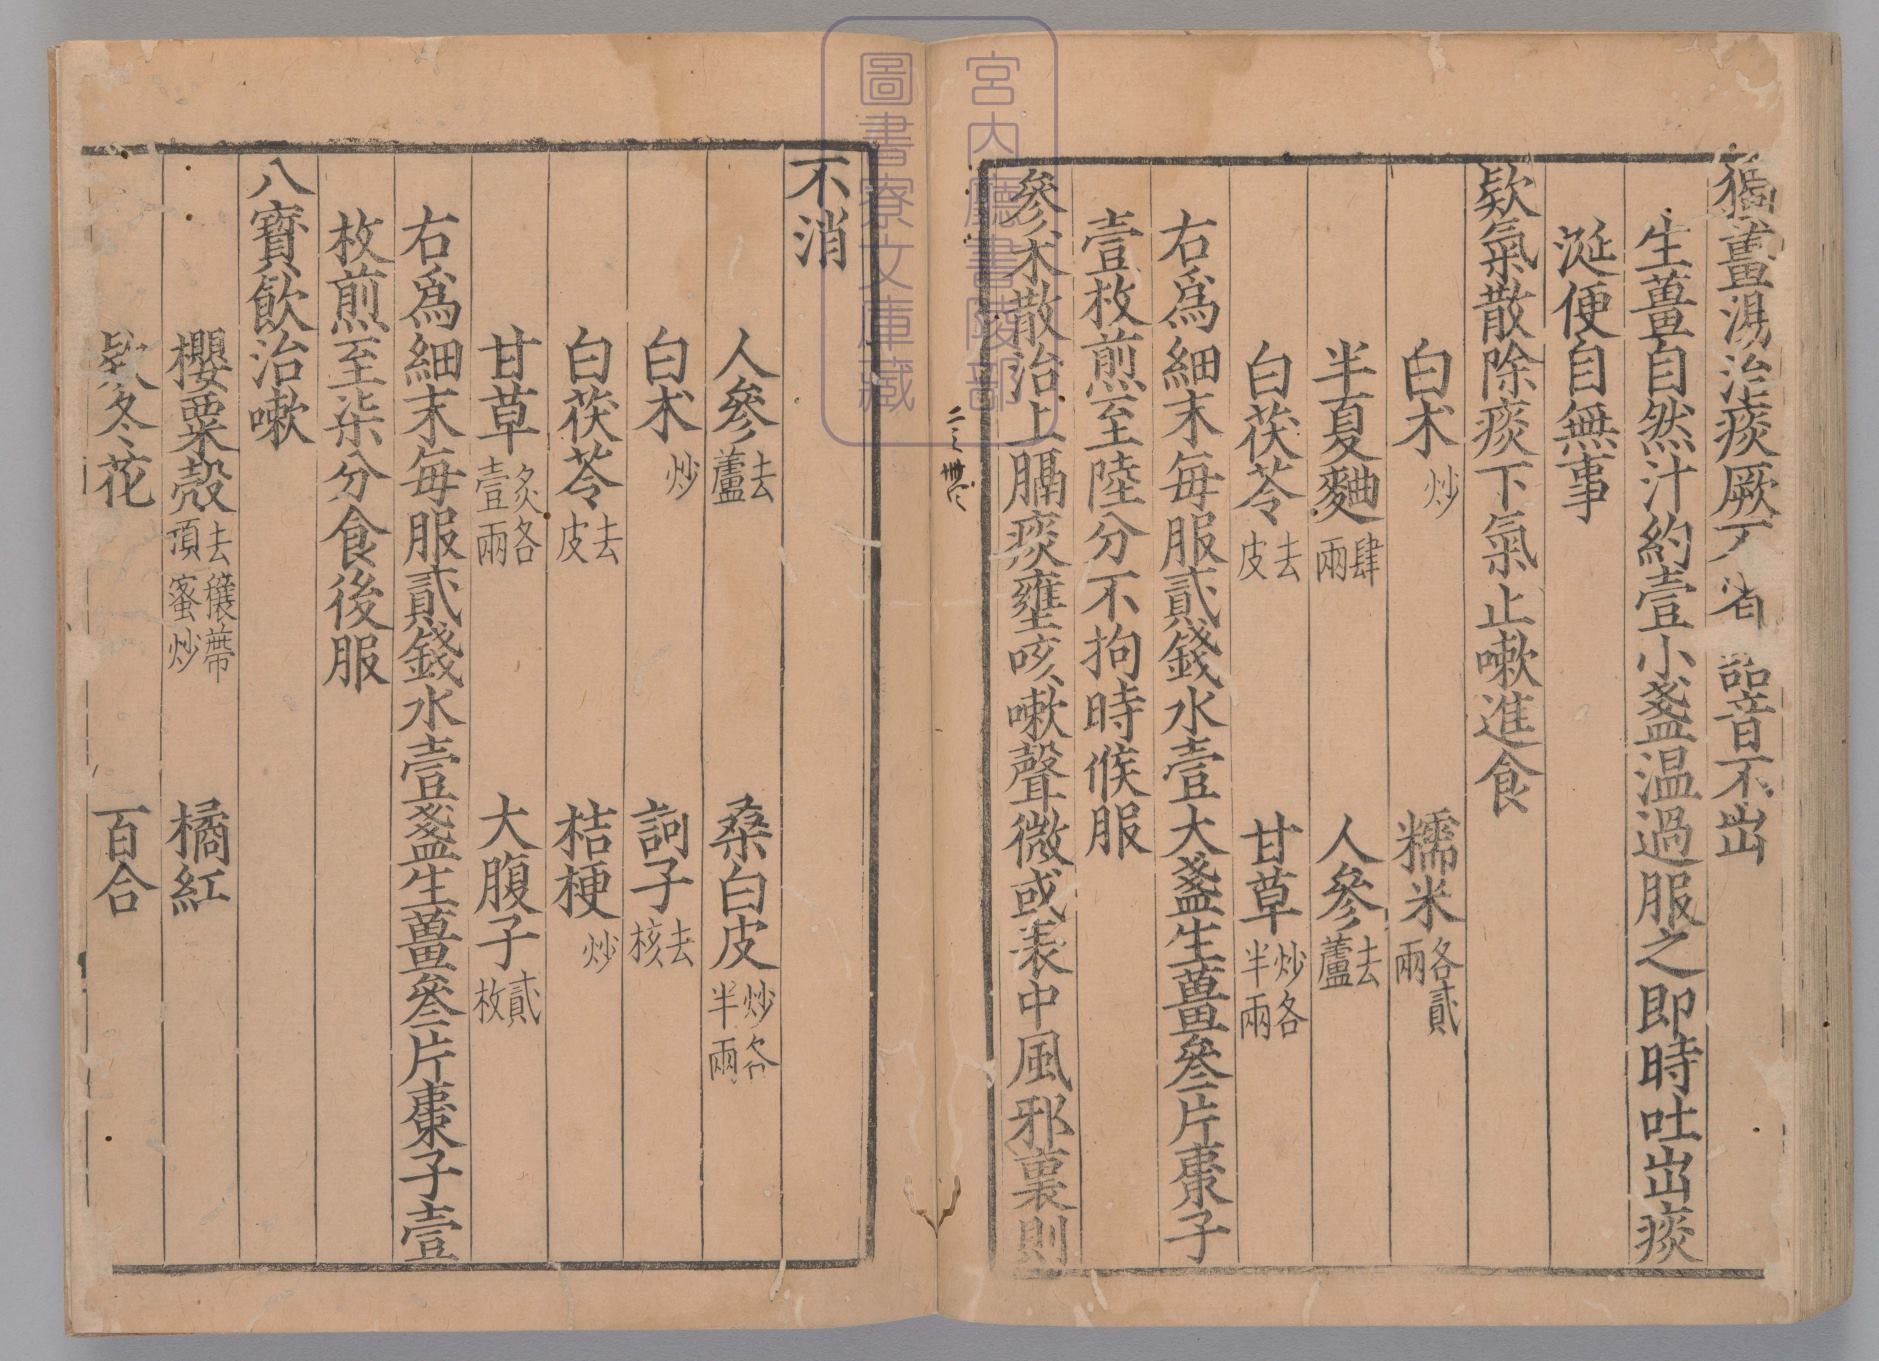 薑湯治痰厥不省 語音不出
生薑自然汁約壹小盞温過服之即時吐出痰
涎便自無事
欵氣散除痰下氣止嗽進食
白术炒 糯米各貳兩
半夏麯肆兩 人參去蘆
白茯苓去皮 甘草炒各半兩
右爲細末每服貳錢水壹大盞生薑叁片棗子
壹枚煎至陸分不拘時候服
參术散治上膈痰壅咳嗽聲微或表中風邪裏則
不消
人參去蘆 桑白皮炒各半兩
白术炒 訶子去核
白茯苓去皮 桔梗炒
甘草炙各壹兩 大腹子貳枚
右爲細末每服貳錢水壹盞生薑叁片棗子壹
枚煎至柒分食後服
八寳飲治嗽
櫻粟殼去穰蔕頂蜜炒 橘紅
欵冬花 百合
宮内廳書陵部
圖書寮文庫藏